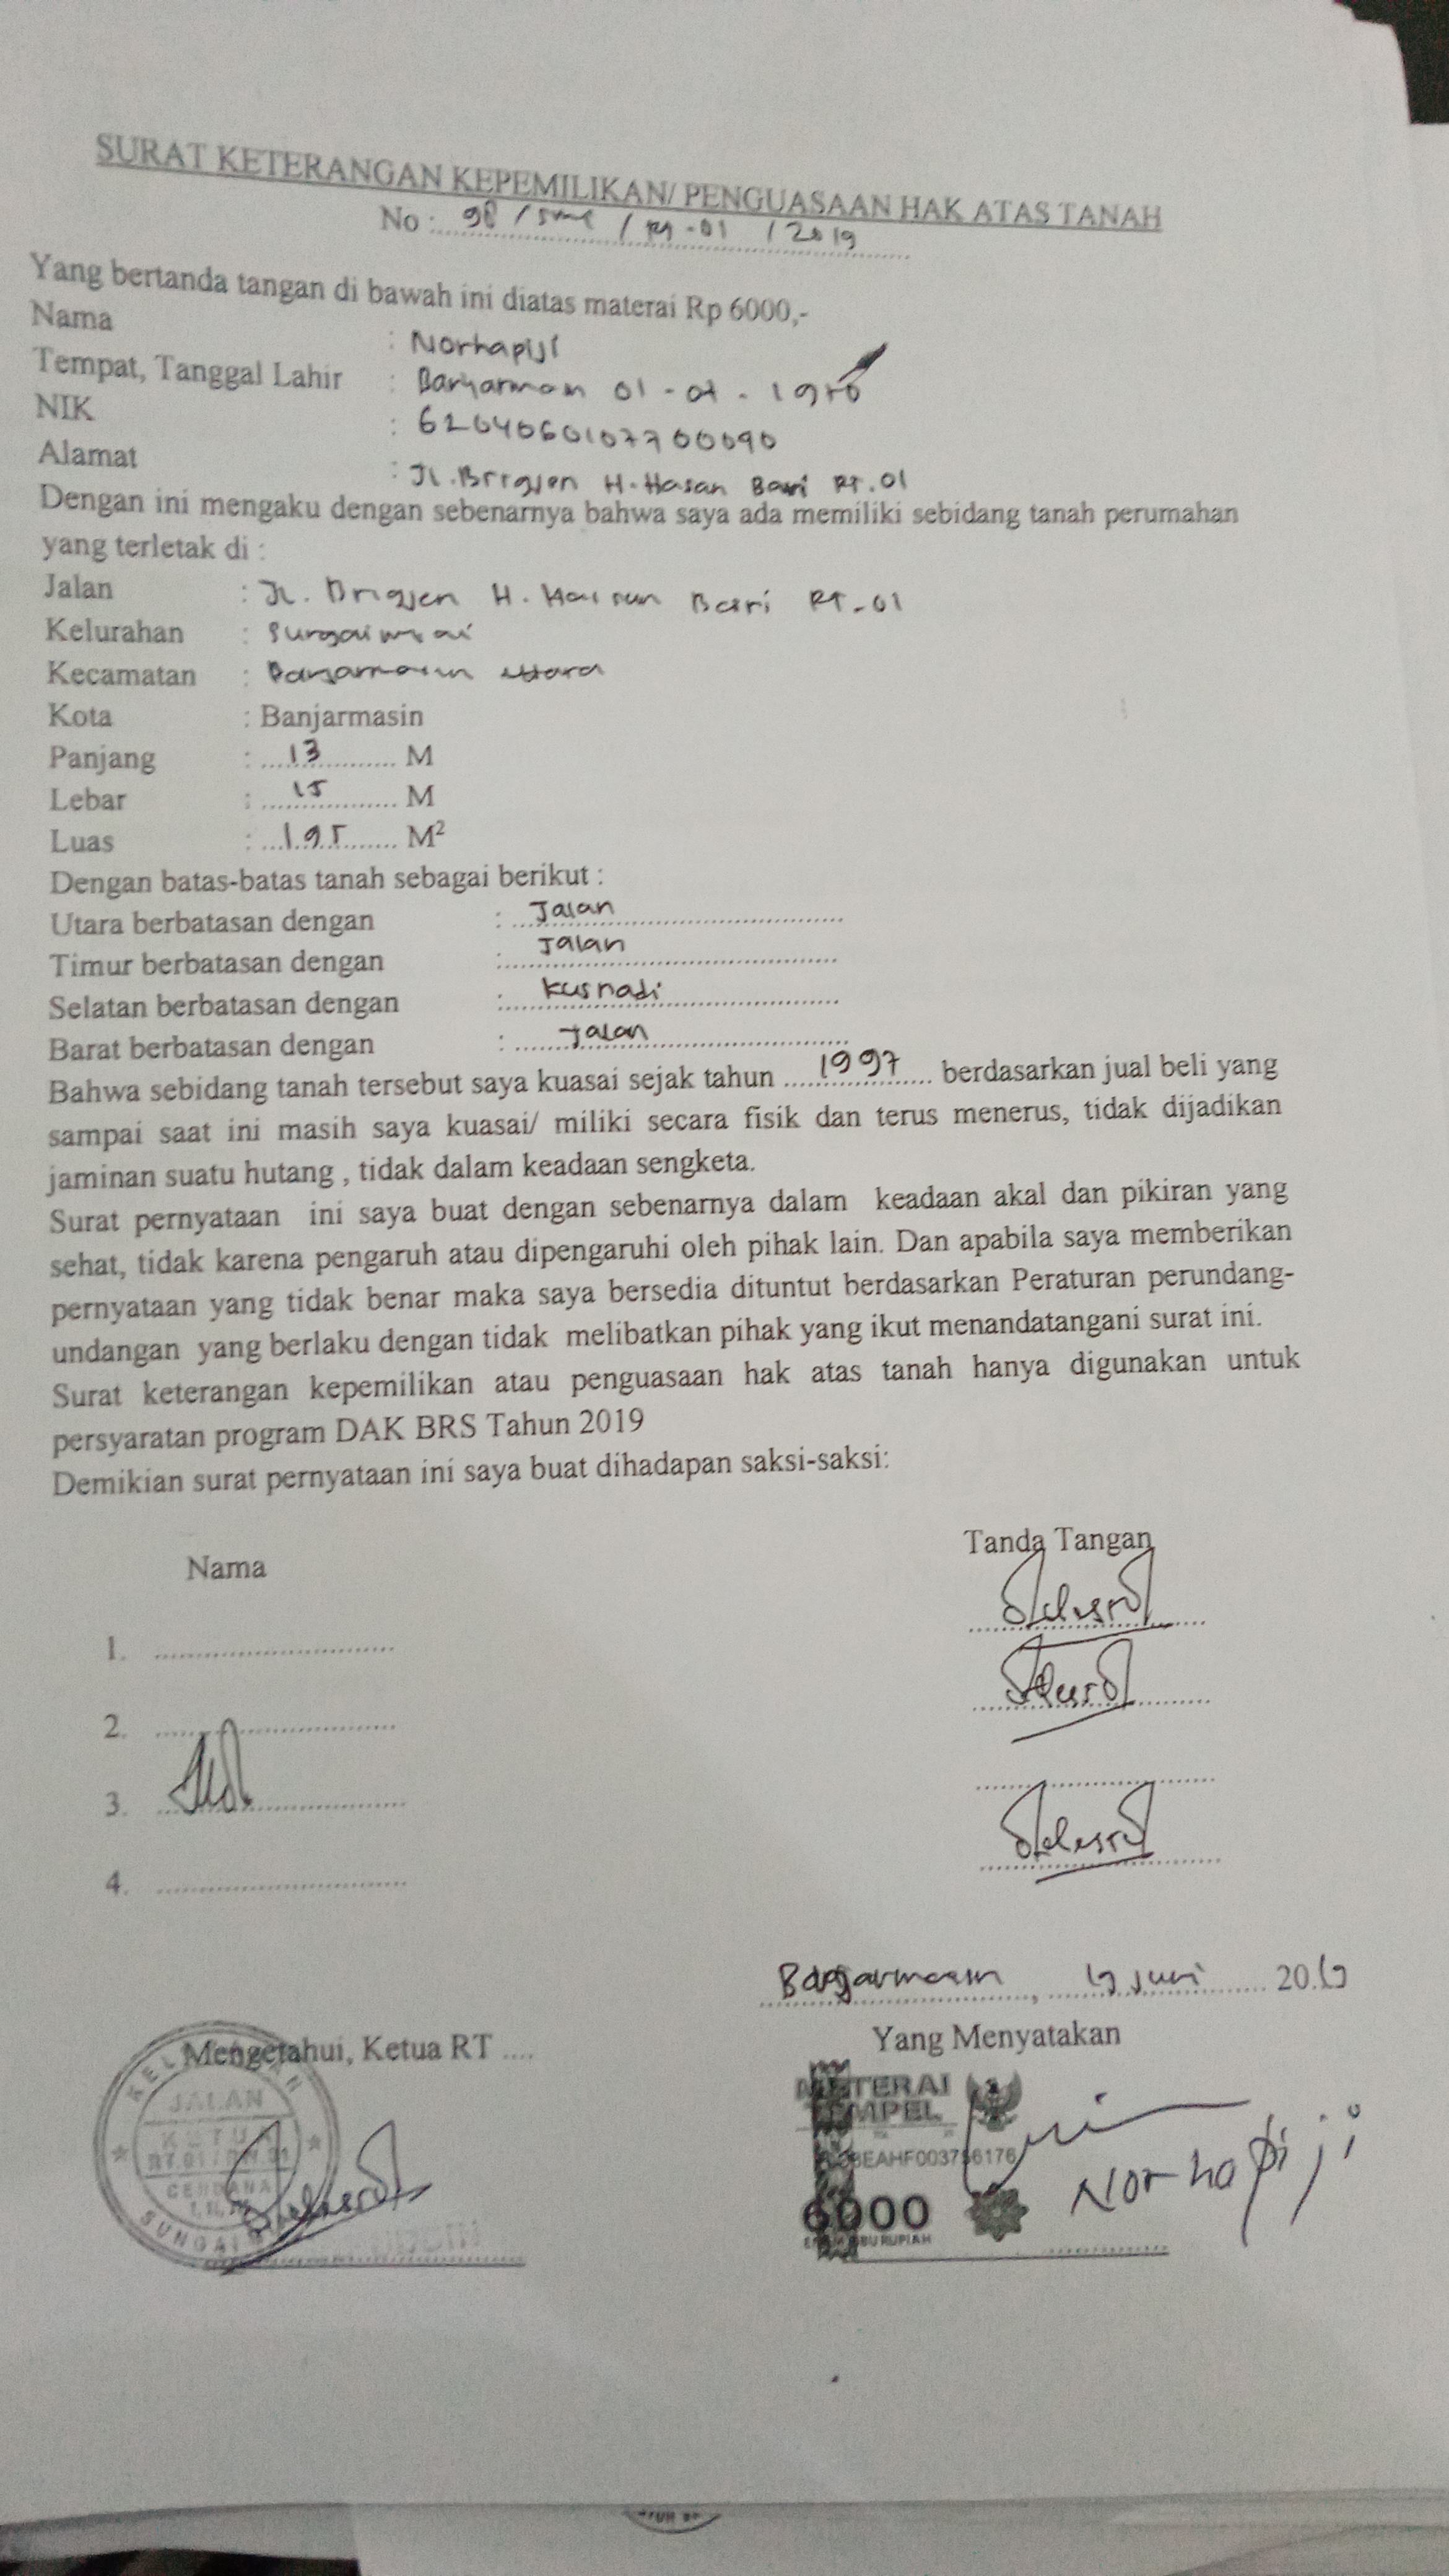 SURAT KETERANGAN KEPEMILIKAN/ PENGUASAAN HAK ATAS TANAH
No : 98 / / RT-01 / 2019
Yang bertanda tangan di bawah ini diatas materai Rp 6000,-
Nama : Norhapiji
Tempat, Tanggal Lahir : 01 -
NIK : 6204060107700090
Alamat : Jl. Brigjen H. Hasan Basri RT. 01
Dengan ini mengaku dengan sebenarnya bahwa saya ada memiliki sebidang tanah perumahan
yang terletak di :
Jalan : Jl. Brigjen H. Hassan Basri RT-01
Kelurahan : Sungai
Kecamatan : Banjarmasin utara
Kota : Banjarmasin
Panjang : 13 M
Lebar : 15 M
Luas : 195 M²
Dengan batas-batas tanah sebagai berikut :
Utara berbatasan dengan : Jalan
Timur berbatasan dengan : Jalan
Selatan berbatasan dengan : Kusnadi
Barat berbatasan dengan : Jalan
Bahwa sebidang tanah tersebut saya kuasai sejak tahun 1997 berdasarkan jual beli yang
sampai saat ini masih saya kuasai/ miliki secara fisik dan terus menerus, tidak dijadikan
jaminan suatu hutang , tidak dalam keadaan sengketa.
Surat pernyataan ini saya buat dengan sebenarnya dalam keadaan akal dan pikiran yang
sehat, tidak karena pengaruh atau dipengaruhi oleh pihak lain. Dan apabila saya memberikan
pernyataan yang tidak benar maka saya bersedia dituntut berdasarkan Peraturan perundang-
undangan yang berlaku dengan tidak melibatkan pihak yang ikut menandatangani surat ini.
Surat keterangan kepemilikan atau penguasaan hak atas tanah hanya digunakan untuk
persyaratan program DAK BRS Tahun 2019
Demikian surat pernyataan ini saya buat dihadapan saksi-saksi:
Nama Tanda Tangan
1.
2.
3.
4.
Banjarmasin, 19 Juni 2019
Mengetahui, Ketua RT .... Yang Menyatakan
JALAN
KETUA
RT.01 /
CENDANA
SUNGAI
METERAI
TEMPEL
EAHF003756176
6000
ENAM RIBU RUPIAH
Norhapiji